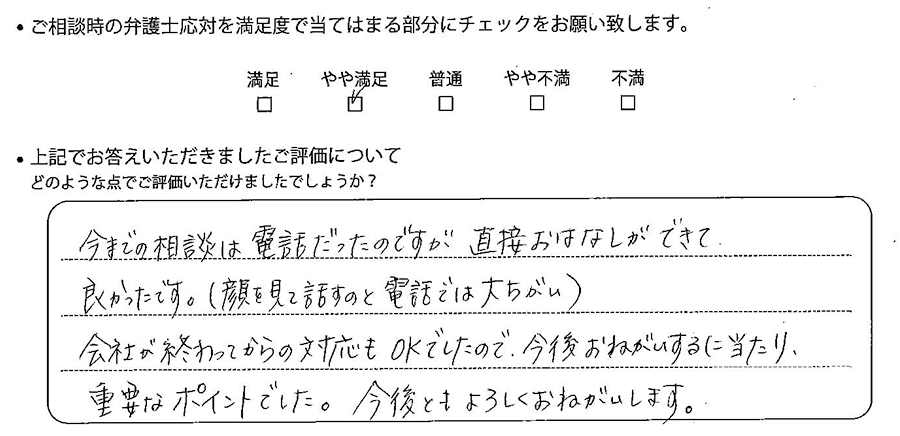 ・ご相談時の弁護士応対を満足度で当てはまる部分にチェックをお願い致します。
満足 やや満足 普通 やや不満 不満
□ ☑ □ □ □
・上記でお答えいただきましたご評価について
どのような点でご評価いただけましたでしょうか？
今までの相談は電話だったのですが 直接おはなしができて
良かったです。(顔を見て話すのと電話では大ちがい)
会社が終わってからの対応もOKでしたので、今後おねがいするに当たり、
重要なポイントでした。今後ともよろしくおねがいします。